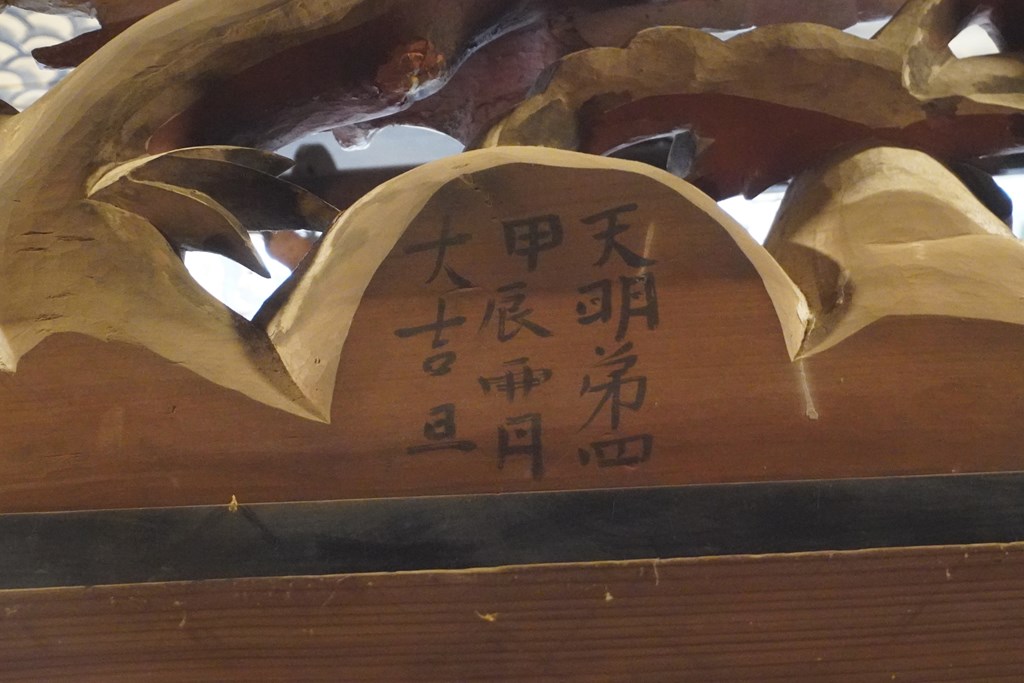 天明弟四
甲辰雨月
大吉旦